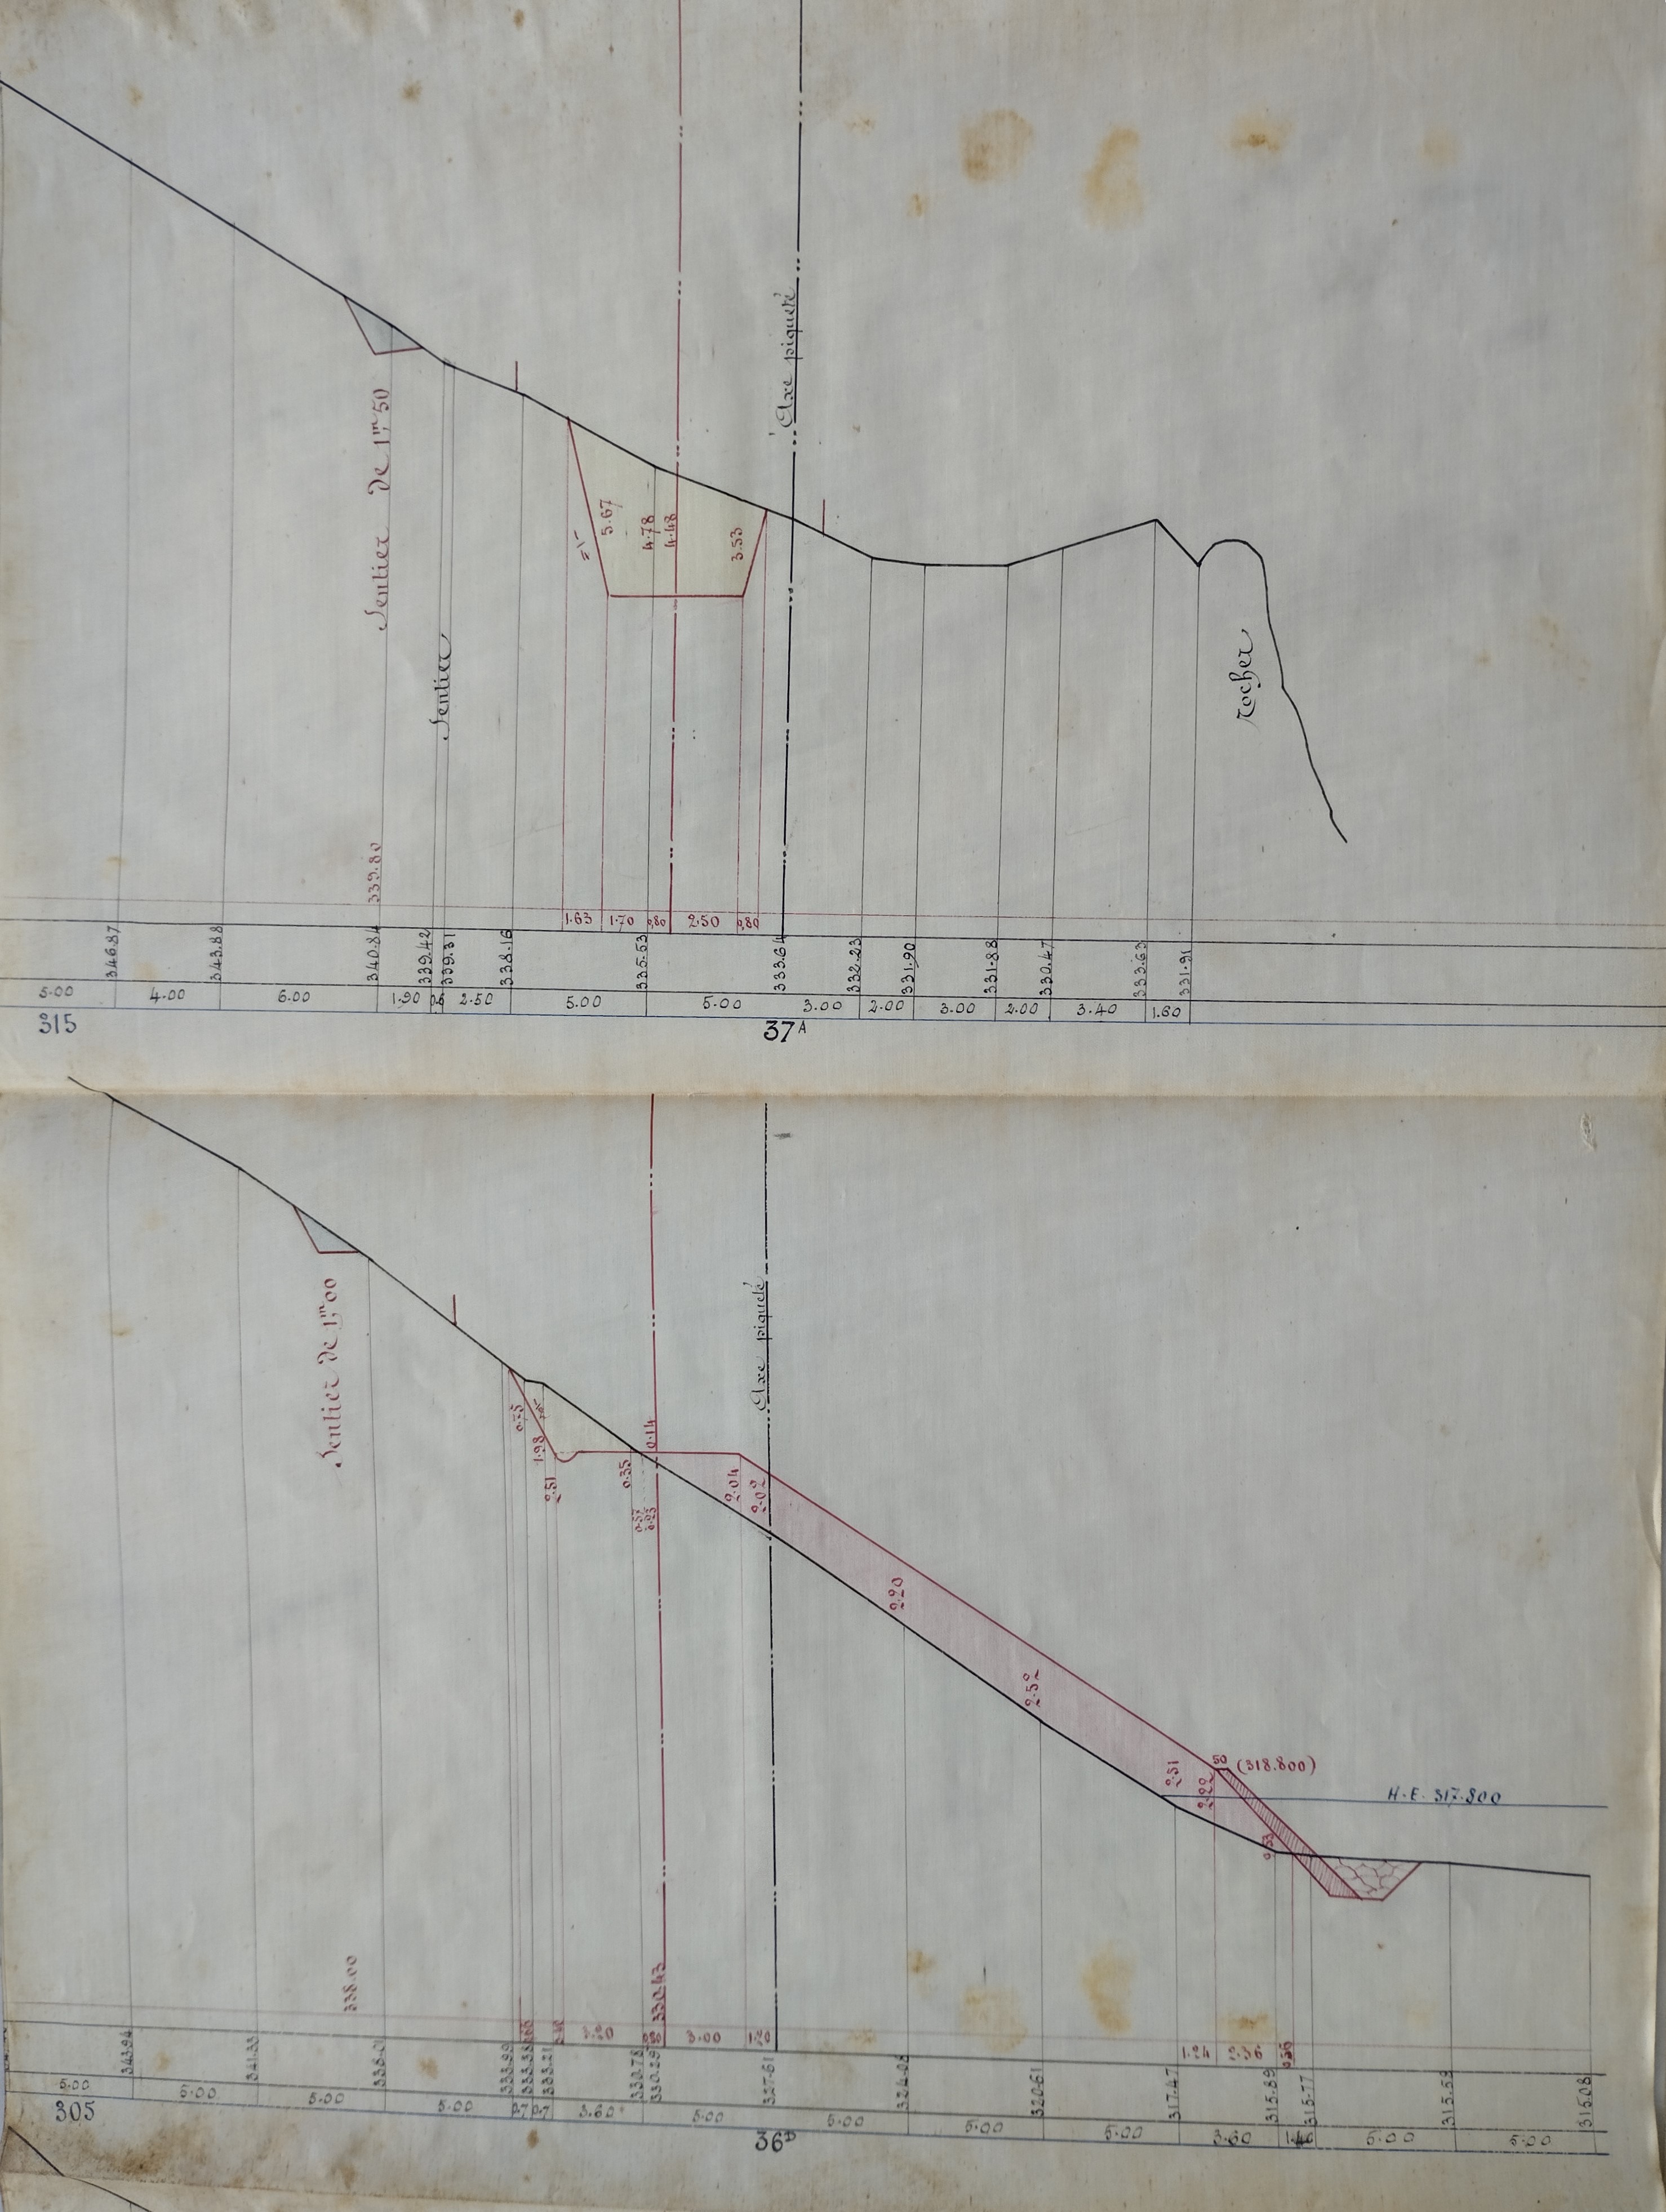 Axe piqueté
Sentier de 1.m50
Sentier
rocher
5.67
4.78
4.48
3.53
339.80
1.63 1.70 0,80 2.50 0,80
346.87 343.88 340.84 339.42 339.31 338.16 335.53 333.64 332.23 331.90 331.88 330.47 333.63 331.91
5.00 4.00 6.00 1.90 2.50 5.00 5.00 3.00 2.00 3.00 2.00 3.40 1.60
315
37A
Axe piqueté
Sentier de 1.m00
0.14
0.75
1.98
2.51
0.35
2.04
2.02
2.20
2.52
2.51
2.22
50 (318.800)
H.E. 317.800
338.00
330.43
3.20 3.00 1.20 1.24 2.36
343.94 341.33 338.01 333.99 333.38 333.21 330.78 330.29 327.61 324.08 320.61 317.47 315.89 315.77 315.59 315.08
5.00 5.00 5.00 5.00 0.7 0.7 3.60 5.00 5.00 5.00 5.00 3.60 1.46 5.00 5.00
305
36D